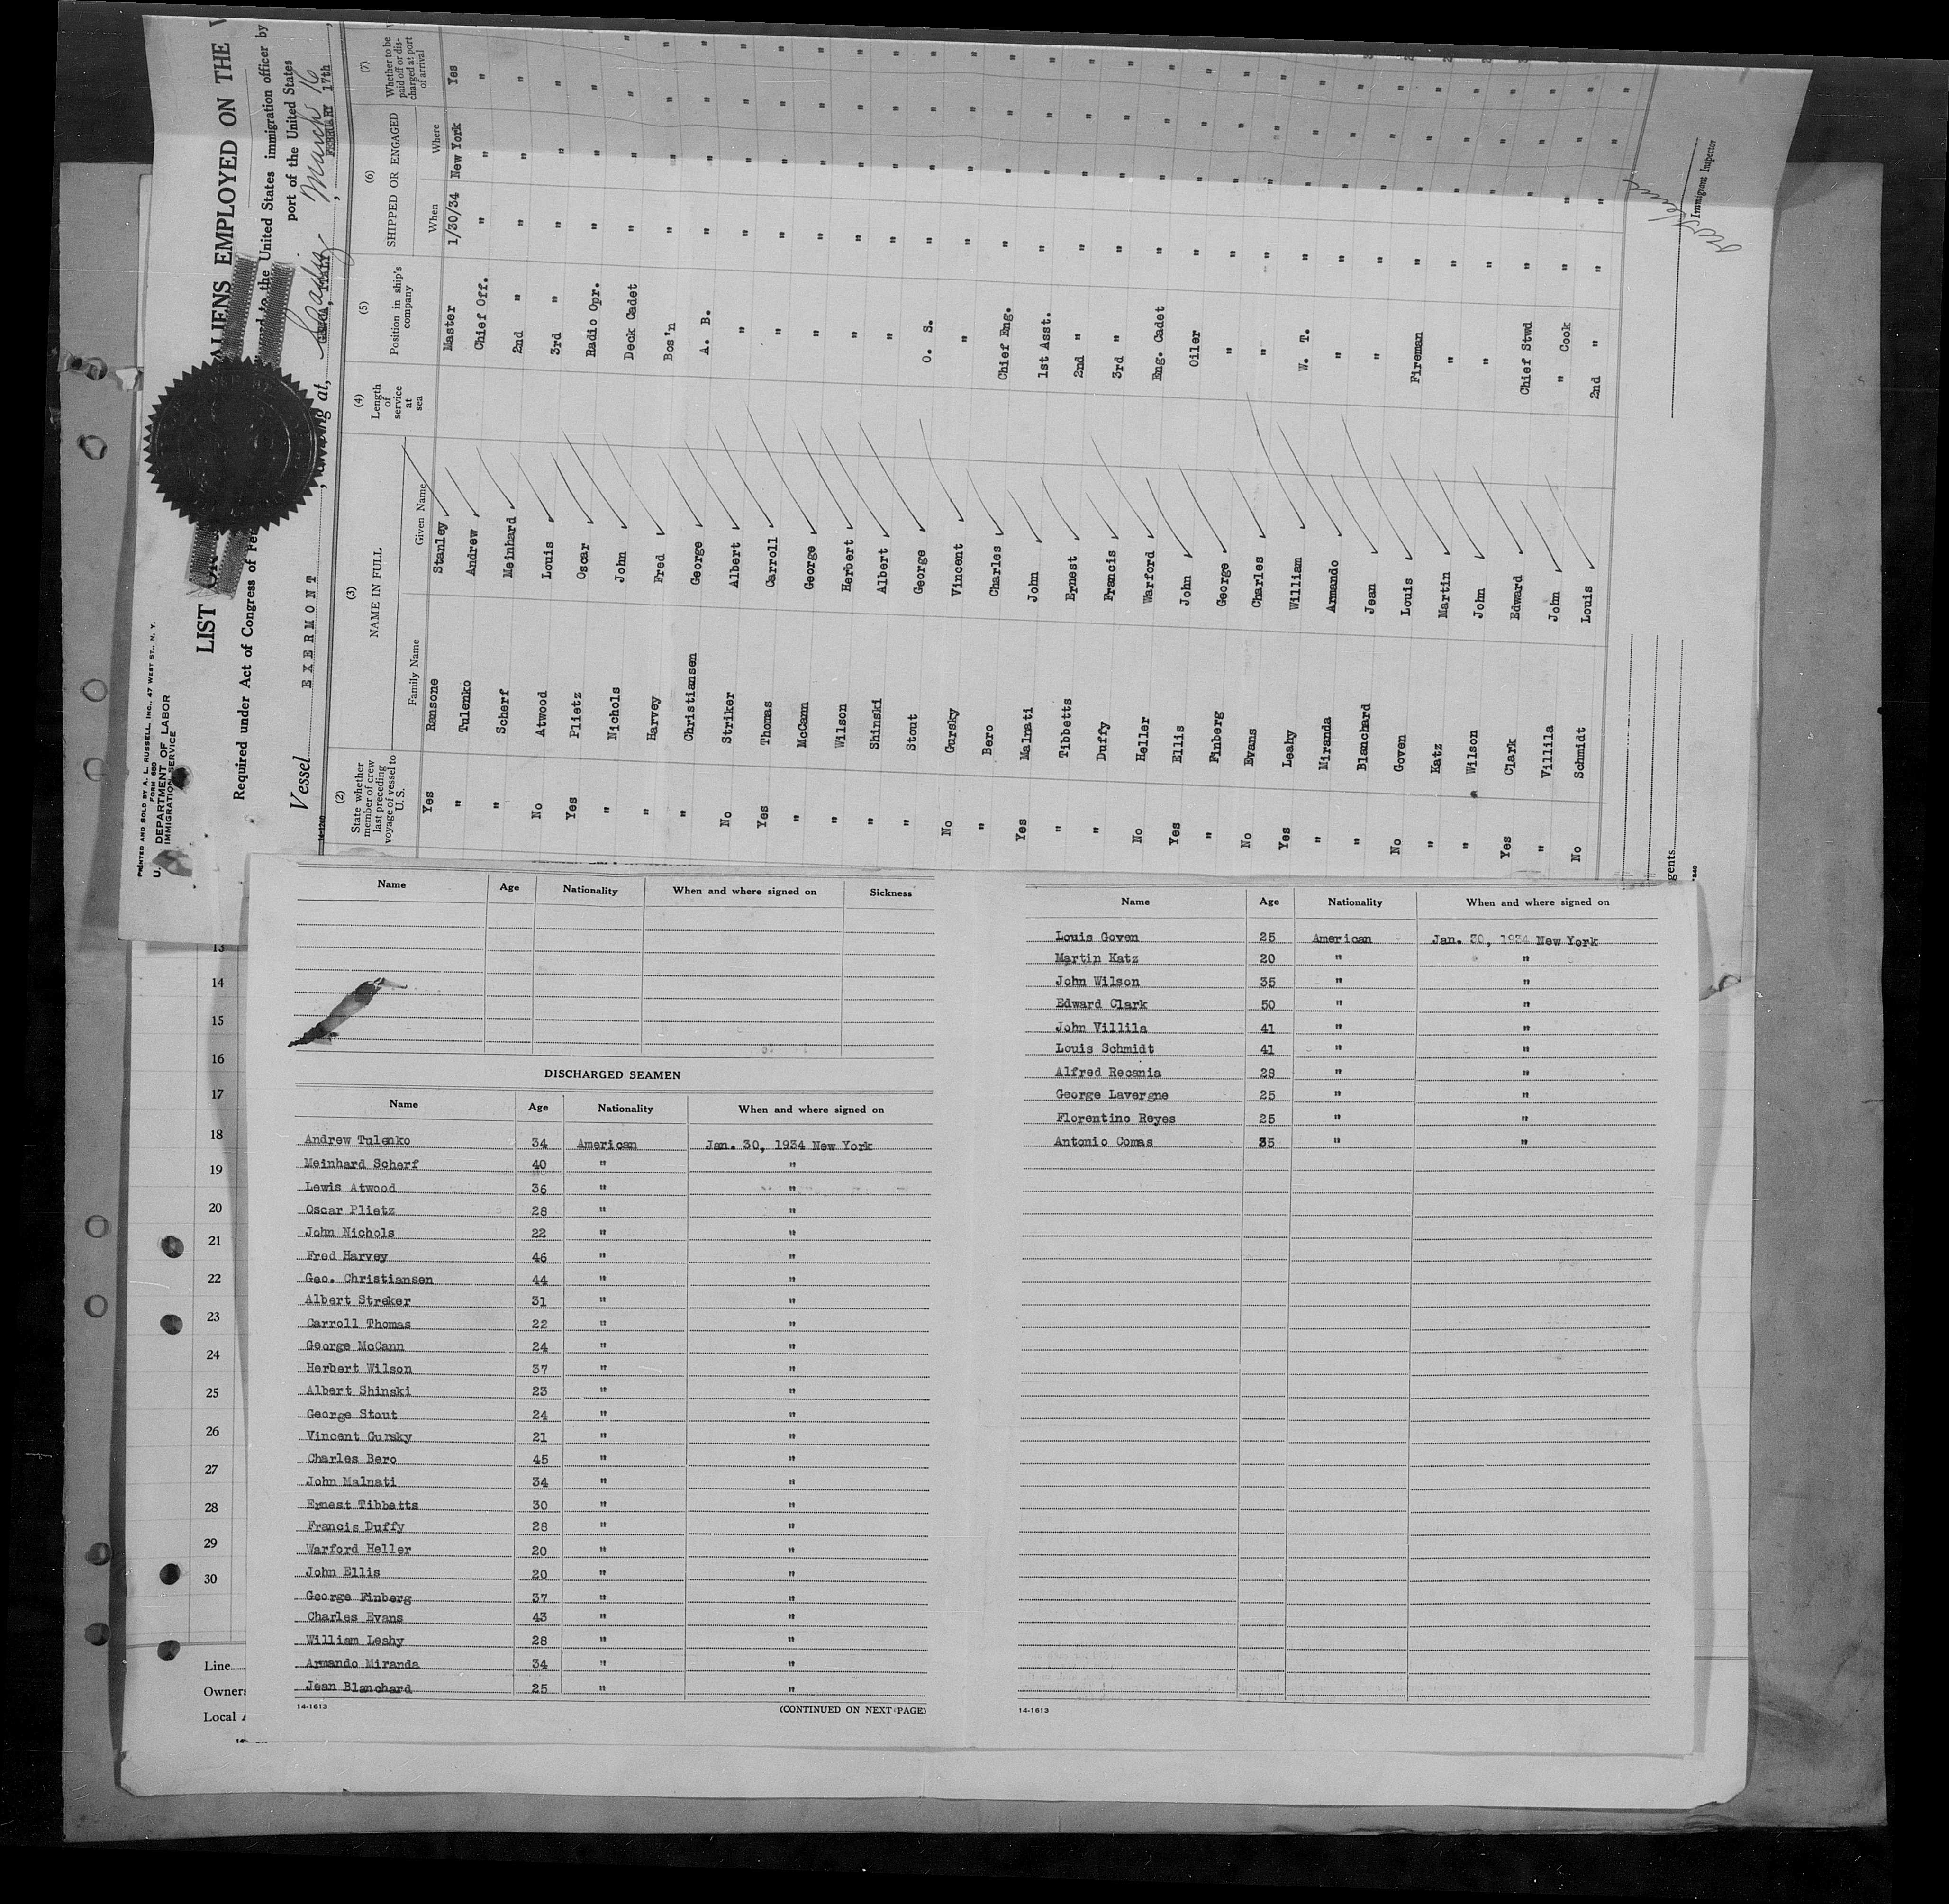 PRINTED AND SOLD BY A. L. RUSSELL, INC., 47 WEST ST., N. Y.
FORM 680
U. S. DEPARTMENT OF LABOR
IMMIGRATION SERVICE
LIST OR ALIENS EMPLOYED ON THE
Required under Act of Congress of the United States immigration officer by
port of the United States
Vessel EXERMONT, arriving at, March 16, FEBRUARY 17th,
(2) State whether member of crew last preceding voyage of vessel to U.S.
(3) NAME IN FULL
Family Name Given Name
(4) Length of service at sea
(5) Position in ship's company
(6) SHIPPED OR ENGAGED
When Where
(7) Whether to be paid off or discharged at port of arrival
Yes Ransone Stanley Master 1/30/34 New York Yes
" Tulenko Andrew Chief Off. " " "
" Scherf Meinhard 2nd " " " "
No Atwood Louis 3rd " " " "
Yes Plietz Oscar Radio Opr. " " "
" Nichols John Deck Cadet " " "
" Harvey Fred Bos'n " " "
" Christiansen George A. B. " " "
No Striker Albert " " " "
Yes Thomas Carroll " " " "
" McCann George " " " "
" Wilson Herbert " " " "
" Shinski Albert " " " "
" Stout George O. S. " " "
No Gursky Vincent " " " "
" Bero Charles Chief Eng. " " "
Yes Malnati John 1st Asst. " " "
" Tibbetts Ernest 2nd " " " "
" Duffy Francis 3rd " " " "
No Heller Warford Eng. Cadet " " "
Yes Ellis John Oiler " " "
" Finberg George " " " "
No Evans Charles " " " "
Yes Leahy William W. T. " " "
" Miranda Armando " " " "
" Blanchard Jean " " " "
No Goven Louis Fireman " " "
" Katz Martin " " " "
" Wilson John " " " "
Yes Clark Edward Chief Stwd " " "
" Villila John " Cook " " "
No Schmidt Louis 2nd " " " "
Immigrant Inspector
gents
13
14
15
16
17
18
19
20
21
22
23
24
25
26
27
28
29
30
Line
Owners
Local A
Name Age Nationality When and where signed on Sickness
DISCHARGED SEAMEN
Name Age Nationality When and where signed on
Andrew Tulenko 34 American Jan. 30, 1934 New York
Meinhard Scherf 40 " "
Lewis Atwood 36 " "
Oscar Plietz 28 " "
John Nichols 22 " "
Fred Harvey 46 " "
Geo. Christiansen 44 " "
Albert Streker 31 " "
Carroll Thomas 22 " "
George McCann 24 " "
Herbert Wilson 37 " "
Albert Shinski 23 " "
George Stout 24 " "
Vincent Gursky 21 " "
Charles Bero 45 " "
John Malnati 34 " "
Ernest Tibbetts 30 " "
Francis Duffy 28 " "
Warford Heller 20 " "
John Ellis 20 " "
George Finberg 37 " "
Charles Evans 43 " "
William Leahy 28 " "
Armando Miranda 34 " "
Jean Blanchard 25 " "
14-1613 (CONTINUED ON NEXT PAGE)
Name Age Nationality When and where signed on
Louis Goven 25 American Jan. 30, 1934 New York
Martin Katz 20 " "
John Wilson 35 " "
Edward Clark 50 " "
John Villila 41 " "
Louis Schmidt 41 " "
Alfred Recania 28 " "
George Lavergne 25 " "
Florentino Reyes 25 " "
Antonio Comas 35 " "
14-1613